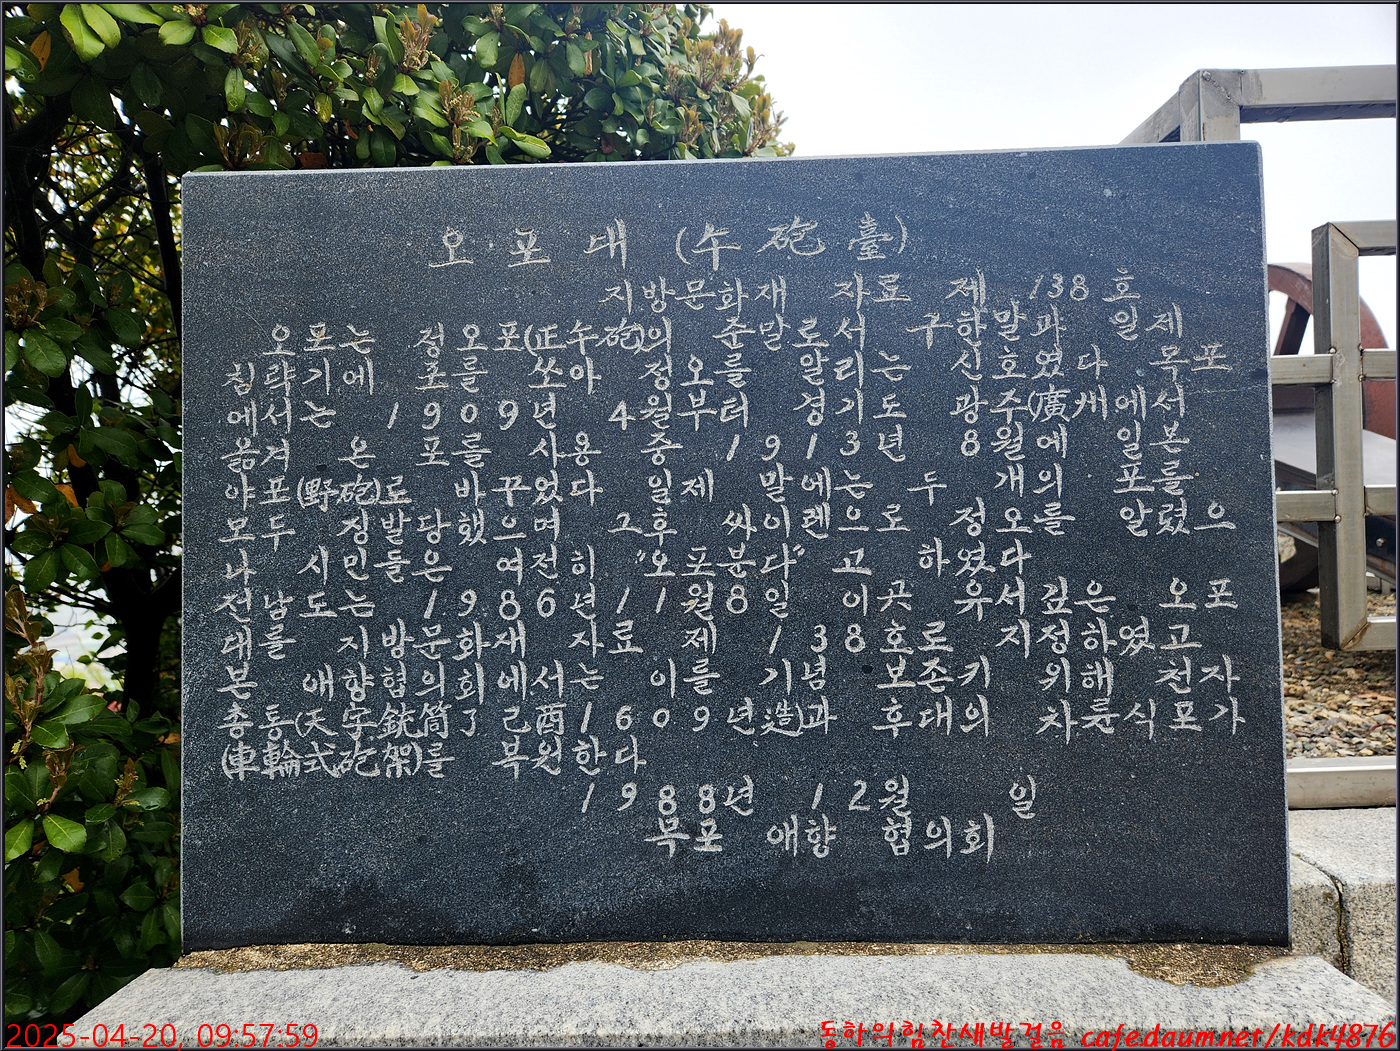 오포대(午砲臺)
지방문화재 자료 제 138호
오포는 정오포(正午砲)의 준말로서 구한말과 일제
침략기에 포를 쏘아 정오를 알리는 신호였다 목포
에서는 1909년 4월부터 경기도 광주(廣州)에서
옮겨 온 포를 사용중 1913년 8월에 일본
야포(野砲)로 바꾸었다 일제 말에는 두 개의 포를
모두 징발당했으며 그후 싸이렌으로 정오를 알렸으
나 시민들은 여전히 "오포분다"고 하였다
전남도는 1986년 11월8일 이곳 유서깊은 오포
대를 지방문화재 자료 제 138호로 지정하였고
본 애향협의회에서는 이를 기념 보존키 위해 천자
총통(天字銃筒 己酉1609년造)과 후대의 차륜식포가
(車輪式砲架)를 복원한다
1988년 12월 일
목포 애향 협의회
2025-04-20, 09:57:59
동하의힘찬새발걸음 cafedaumnet/kdk4876